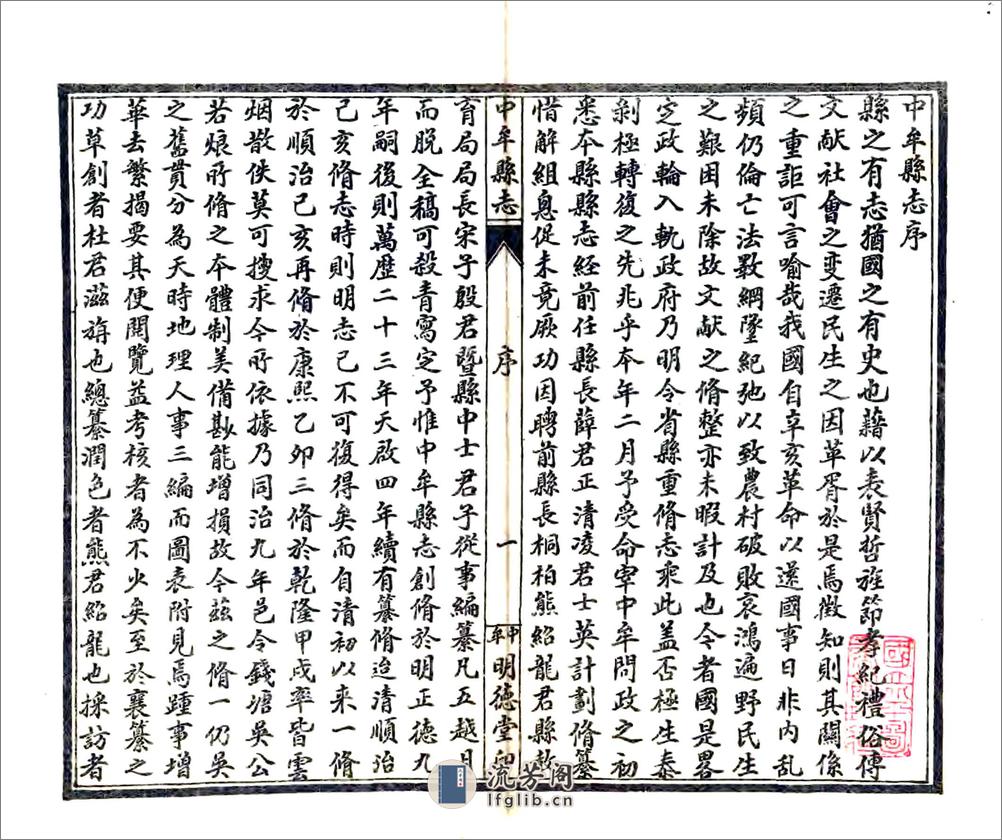 中牟縣志序
縣之有志猶國之有史也藉以表賢哲旌節孝紀禮俗傳
文献社會之变遷民生之因革胥於是焉徵知則其關係
之重詎可言喻哉我國自辛亥革命以還國事日非内乱
頻仍倫亡法斁綱墜紀弛以致農村破敗哀鴻遍野民生
之艱困未除故文献之脩整亦未暇計及也今者國是畧
定政輪入軌政府乃明令省縣重脩志乘此盖否極生泰
剝極轉復之先兆乎本年二月予受命宰中牟問政之初
悉本縣縣志經前任縣長薛君正清凌君士英計劃脩纂
惜解組悤促未竟厥功因聘前縣長桐柏熊紹龍君縣教
中牟縣志
序
一
中牟
明德堂印
育局局長宋子殷君暨縣中士君子從事編纂凡五越月
而脱全稿可殺青寫定予惟中牟縣志創脩於明正德九
年嗣後則萬歷二十三年天啟四年續有纂脩迨清順治
己亥脩志時則明志已不可復得矣而自清初以来一脩
於順治己亥再脩於康熙乙卯三脩於乾隆甲戌率皆雲
烟散佚莫可搜求今所依據乃同治九年邑令錢塘吳公
若烺所脩之本體制美備尠能增損故今茲之脩一仍吳
之舊貫分為天時地理人事三編而圖表附見焉踵事增
華去繁揭要其便閱覽益考核者為不少矣至於襄纂之
功草創者杜君滋旃也總纂潤色者熊君紹龍也採訪者
流芳阁
lfglib.cn